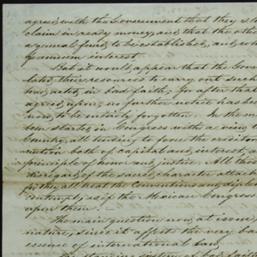 agreed with the Government that they sh
claim in ready money, and that the othe
a general fund, to be established, and, wh
premium interest.
But it would appear that the Gover
lated their resources to carry out such
has acted, in bad faith, for after that
agreed upon, no further notice has bee
now, to be entirely forgotten. In the m
been started in Congress with a view t
Country, all tending to
both of capital and interest, a
principle of honor and justice. All this
disregard of the sacred character attach
they all treat the Conventions and
contempt, as if the Mexican Congress
upon them.
The main question now at issue,
nature, since it affects the very ba
essence of international law,
of bad faith